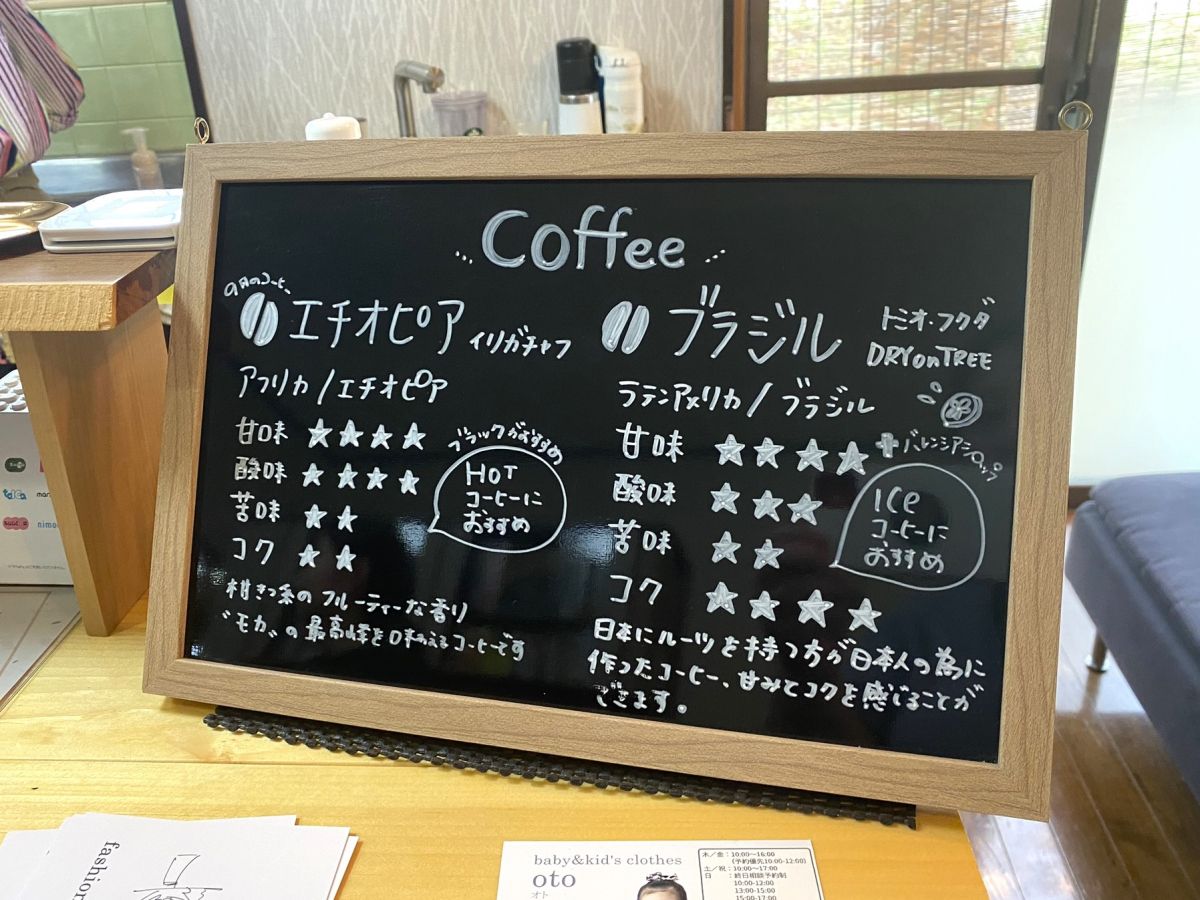 Coffee
9月のコーヒー
エチオピア イリガチャフ
アフリカ / エチオピア
甘味 ★★★★
酸味 ★★★★
苦味 ★★
コク ★★
ブラックがおすすめ
HOT
コーヒーに
おすすめ
柑きつ系のフルーティーな香り
"モカ"の最高峰を味わえるコーヒーです
ブラジル
トミオ・フクダ
DRY on TREE
ラテンアメリカ / ブラジル
甘味 ★★★★
酸味 ★★★
苦味 ★★
コク ★★★★
+バレンシアシロップ
ICe
コーヒーに
おすすめ
日本にルーツを持つ方が日本人の為に
作ったコーヒー、甘みとコクを感じることが
できます。
fashion
baby&kid's clothes
oto
オト
木／金：10:00〜16:00
(予約優先10:00-12:00)
土／祝：10:00〜17:00
日 ：終日相談予約制
10:00-12:00
13:00-15:00
15:00-17:00